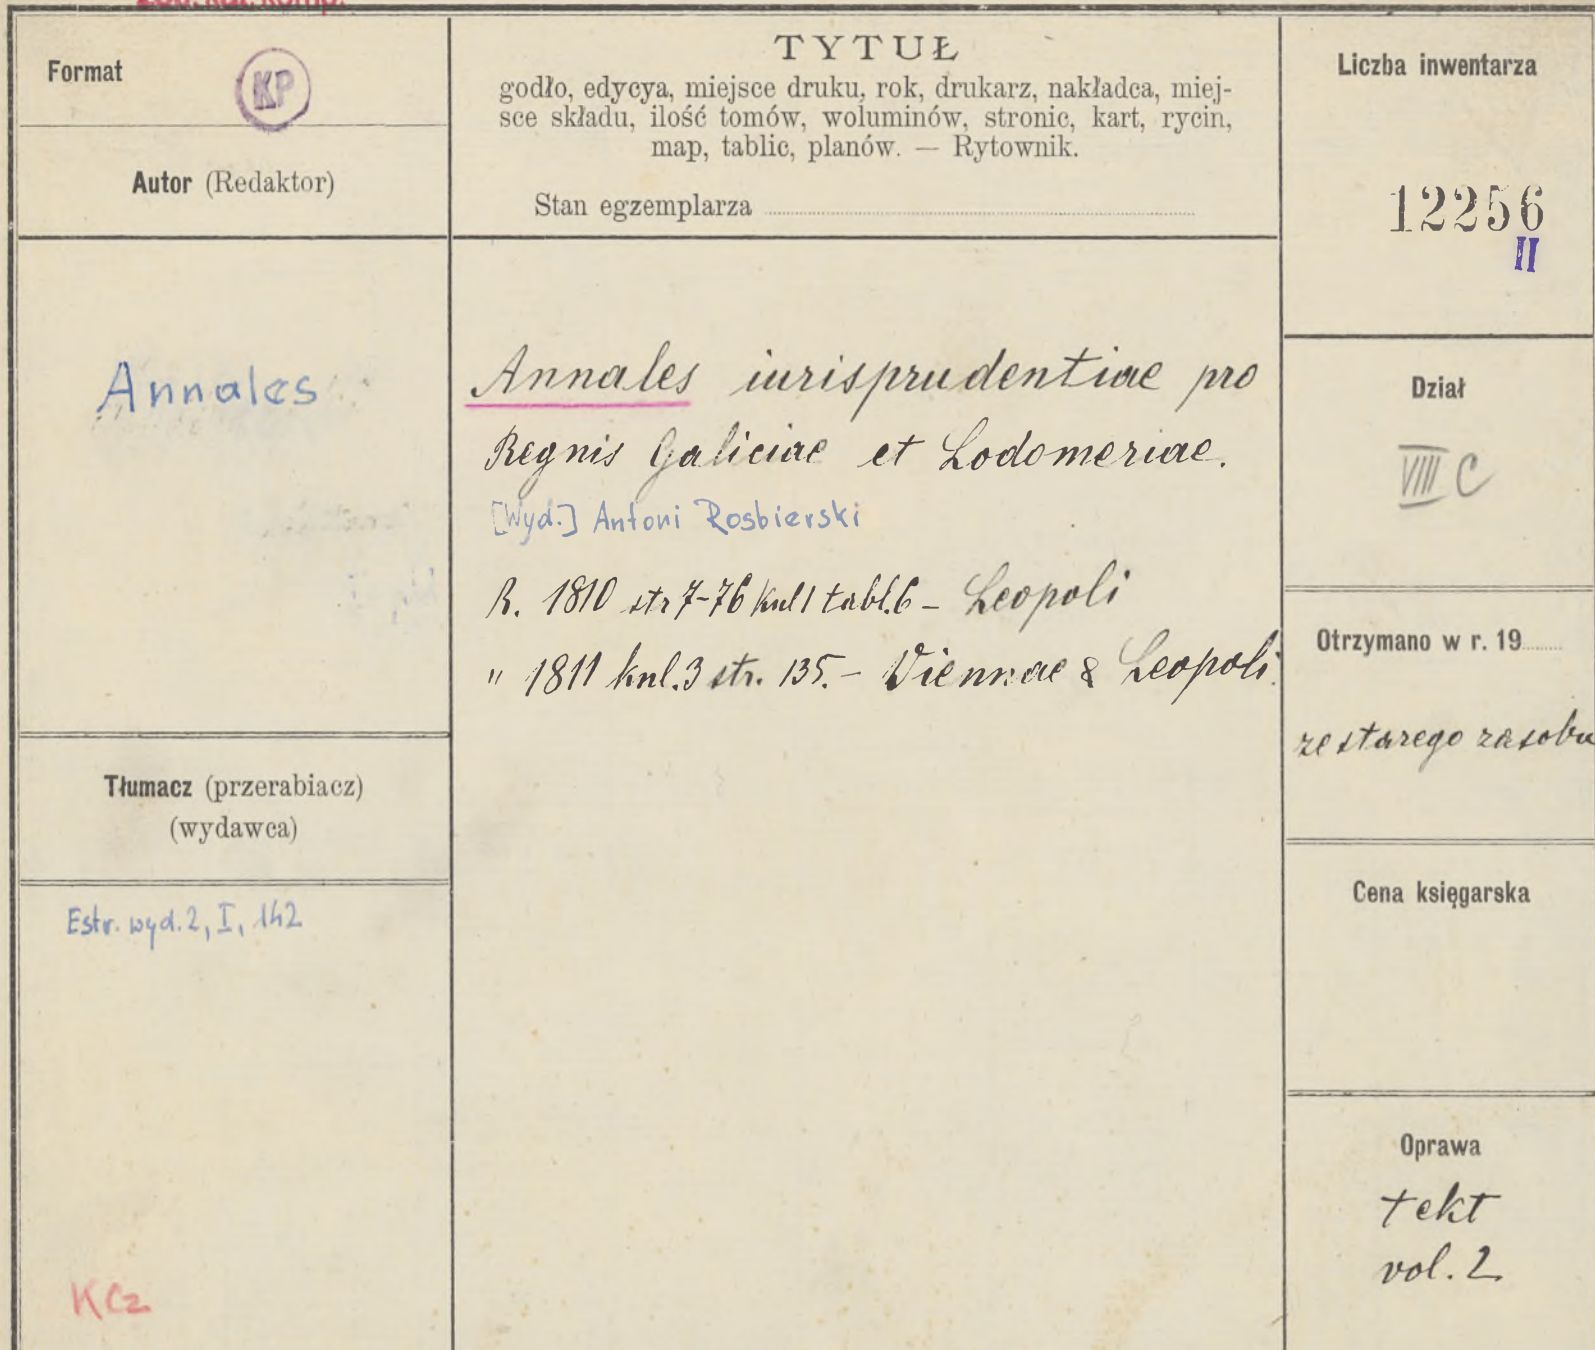 Format
KP
Autor (Redaktor)
Annales
Tłumacz (przerabiacz)
(wydawca)
Estr. wyd. 2, I, 142
KCz
TYTUŁ
godło, edycya, miejsce druku, rok, drukarz, nakładca, miej-
sce składu, ilość tomów, woluminów, stronic, kart, rycin,
map, tablic, planów. — Rytownik.
Stan egzemplarza
Annales iurisprudentiae pro
Regnis Galiciae et Lodomeriae.
[Wyd.] Antoni Rosbierski
R. 1810 str 7-76 knl 1 tabl. 6 - Leopoli
" 1811 knl. 3 str. 135. - Viennae & Leopoli.
Liczba inwentarza
12256
II
Dział
VIII C
Otrzymano w r. 19
ze starego zasobu
Cena księgarska
Oprawa
tekt
vol. 2